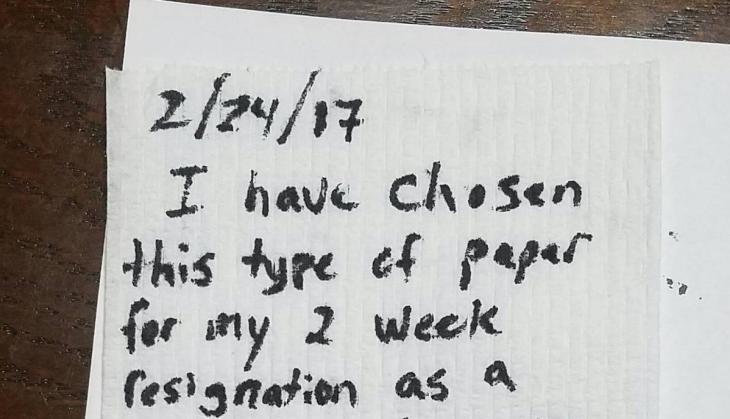 2/24/17
I have chosen
this type of paper
for my 2 week
resignation as a